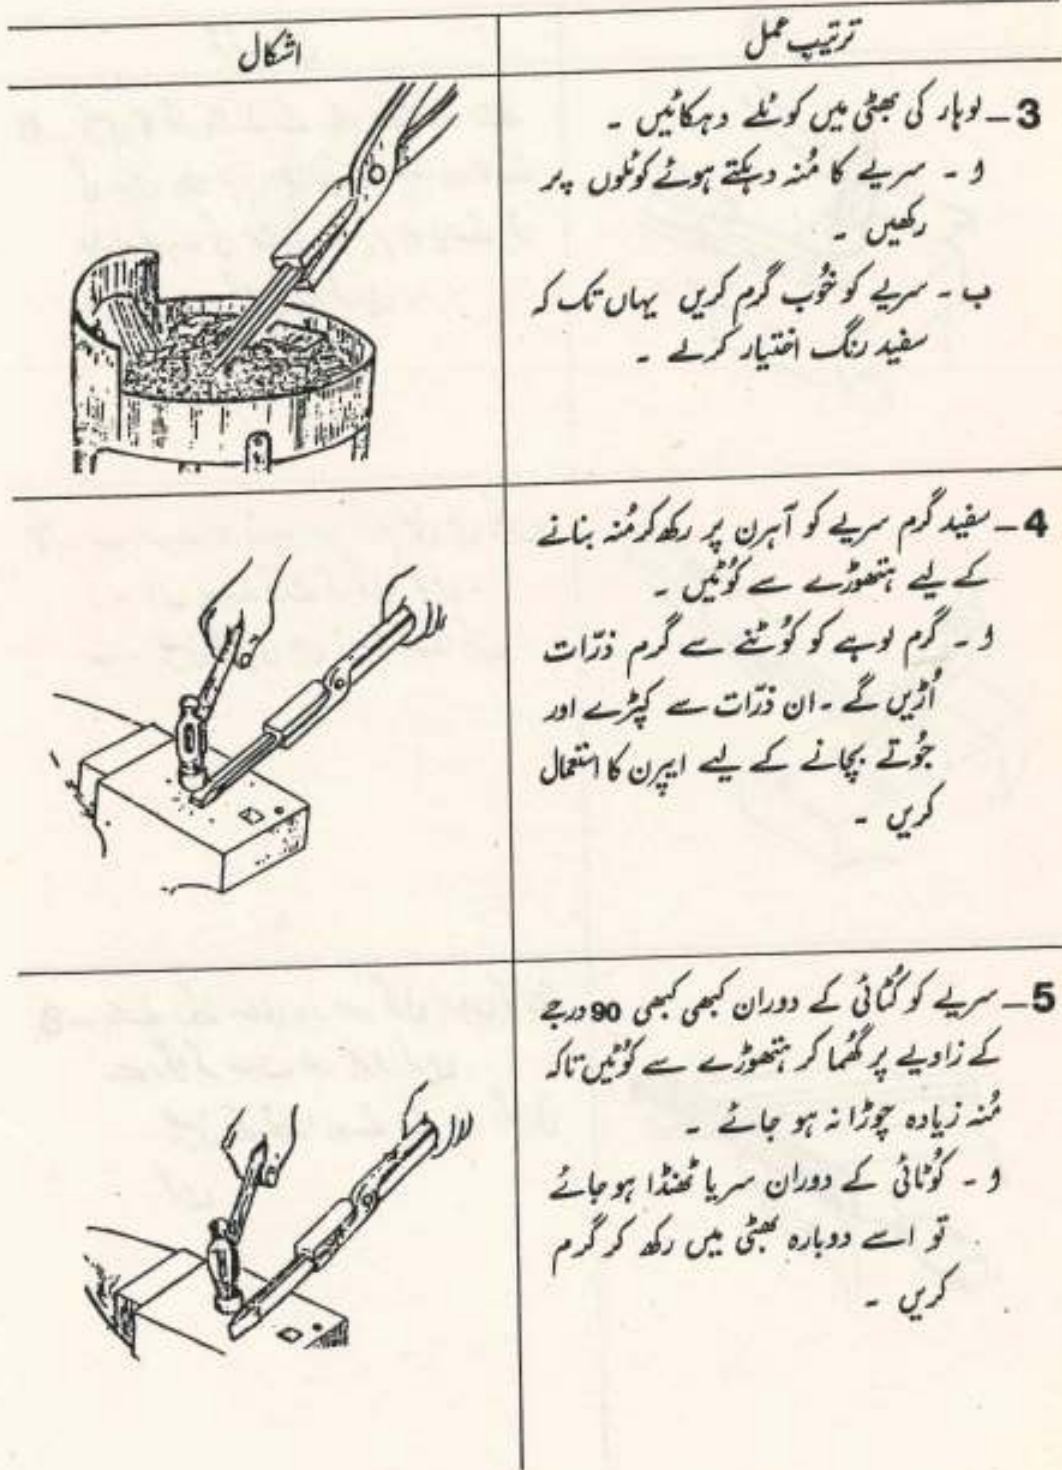 ترتیب عمل
اشکال
3_ لوہار کی بھٹی میں کوئلے دہکائیں ۔
ا ۔ سریے کا مُنہ دہکتے ہوئے کوئلوں پر
رکھیں ۔
ب ۔ سریے کو خُوب گرم کریں یہاں تک کہ
سفید رنگ اختیار کرلے ۔
4_ سفید گرم سریے کو آہرن پر رکھ کر مُنہ بنانے
کے لیے ہتھوڑے سے کُوٹیں ۔
ا ۔ گرم لوہے کو کُوٹنے سے گرم ذرّات
اُڑیں گے ۔ ان ذرّات سے کپڑے اور
جُوتے بچانے کے لیے ایپرن کا استعمال
کریں ۔
5_ سریے کو کُٹائی کے دوران کبھی کبھی 90 درجے
کے زاویے پر گھُما کر ہتھوڑے سے کُوٹیں تاکہ
مُنہ زیادہ چوڑا نہ ہو جائے ۔
ا ۔ کُوٹائی کے دوران سریا ٹھنڈا ہوجائے
تو اسے دوبارہ بھٹی میں رکھ کر گرم
کریں ۔